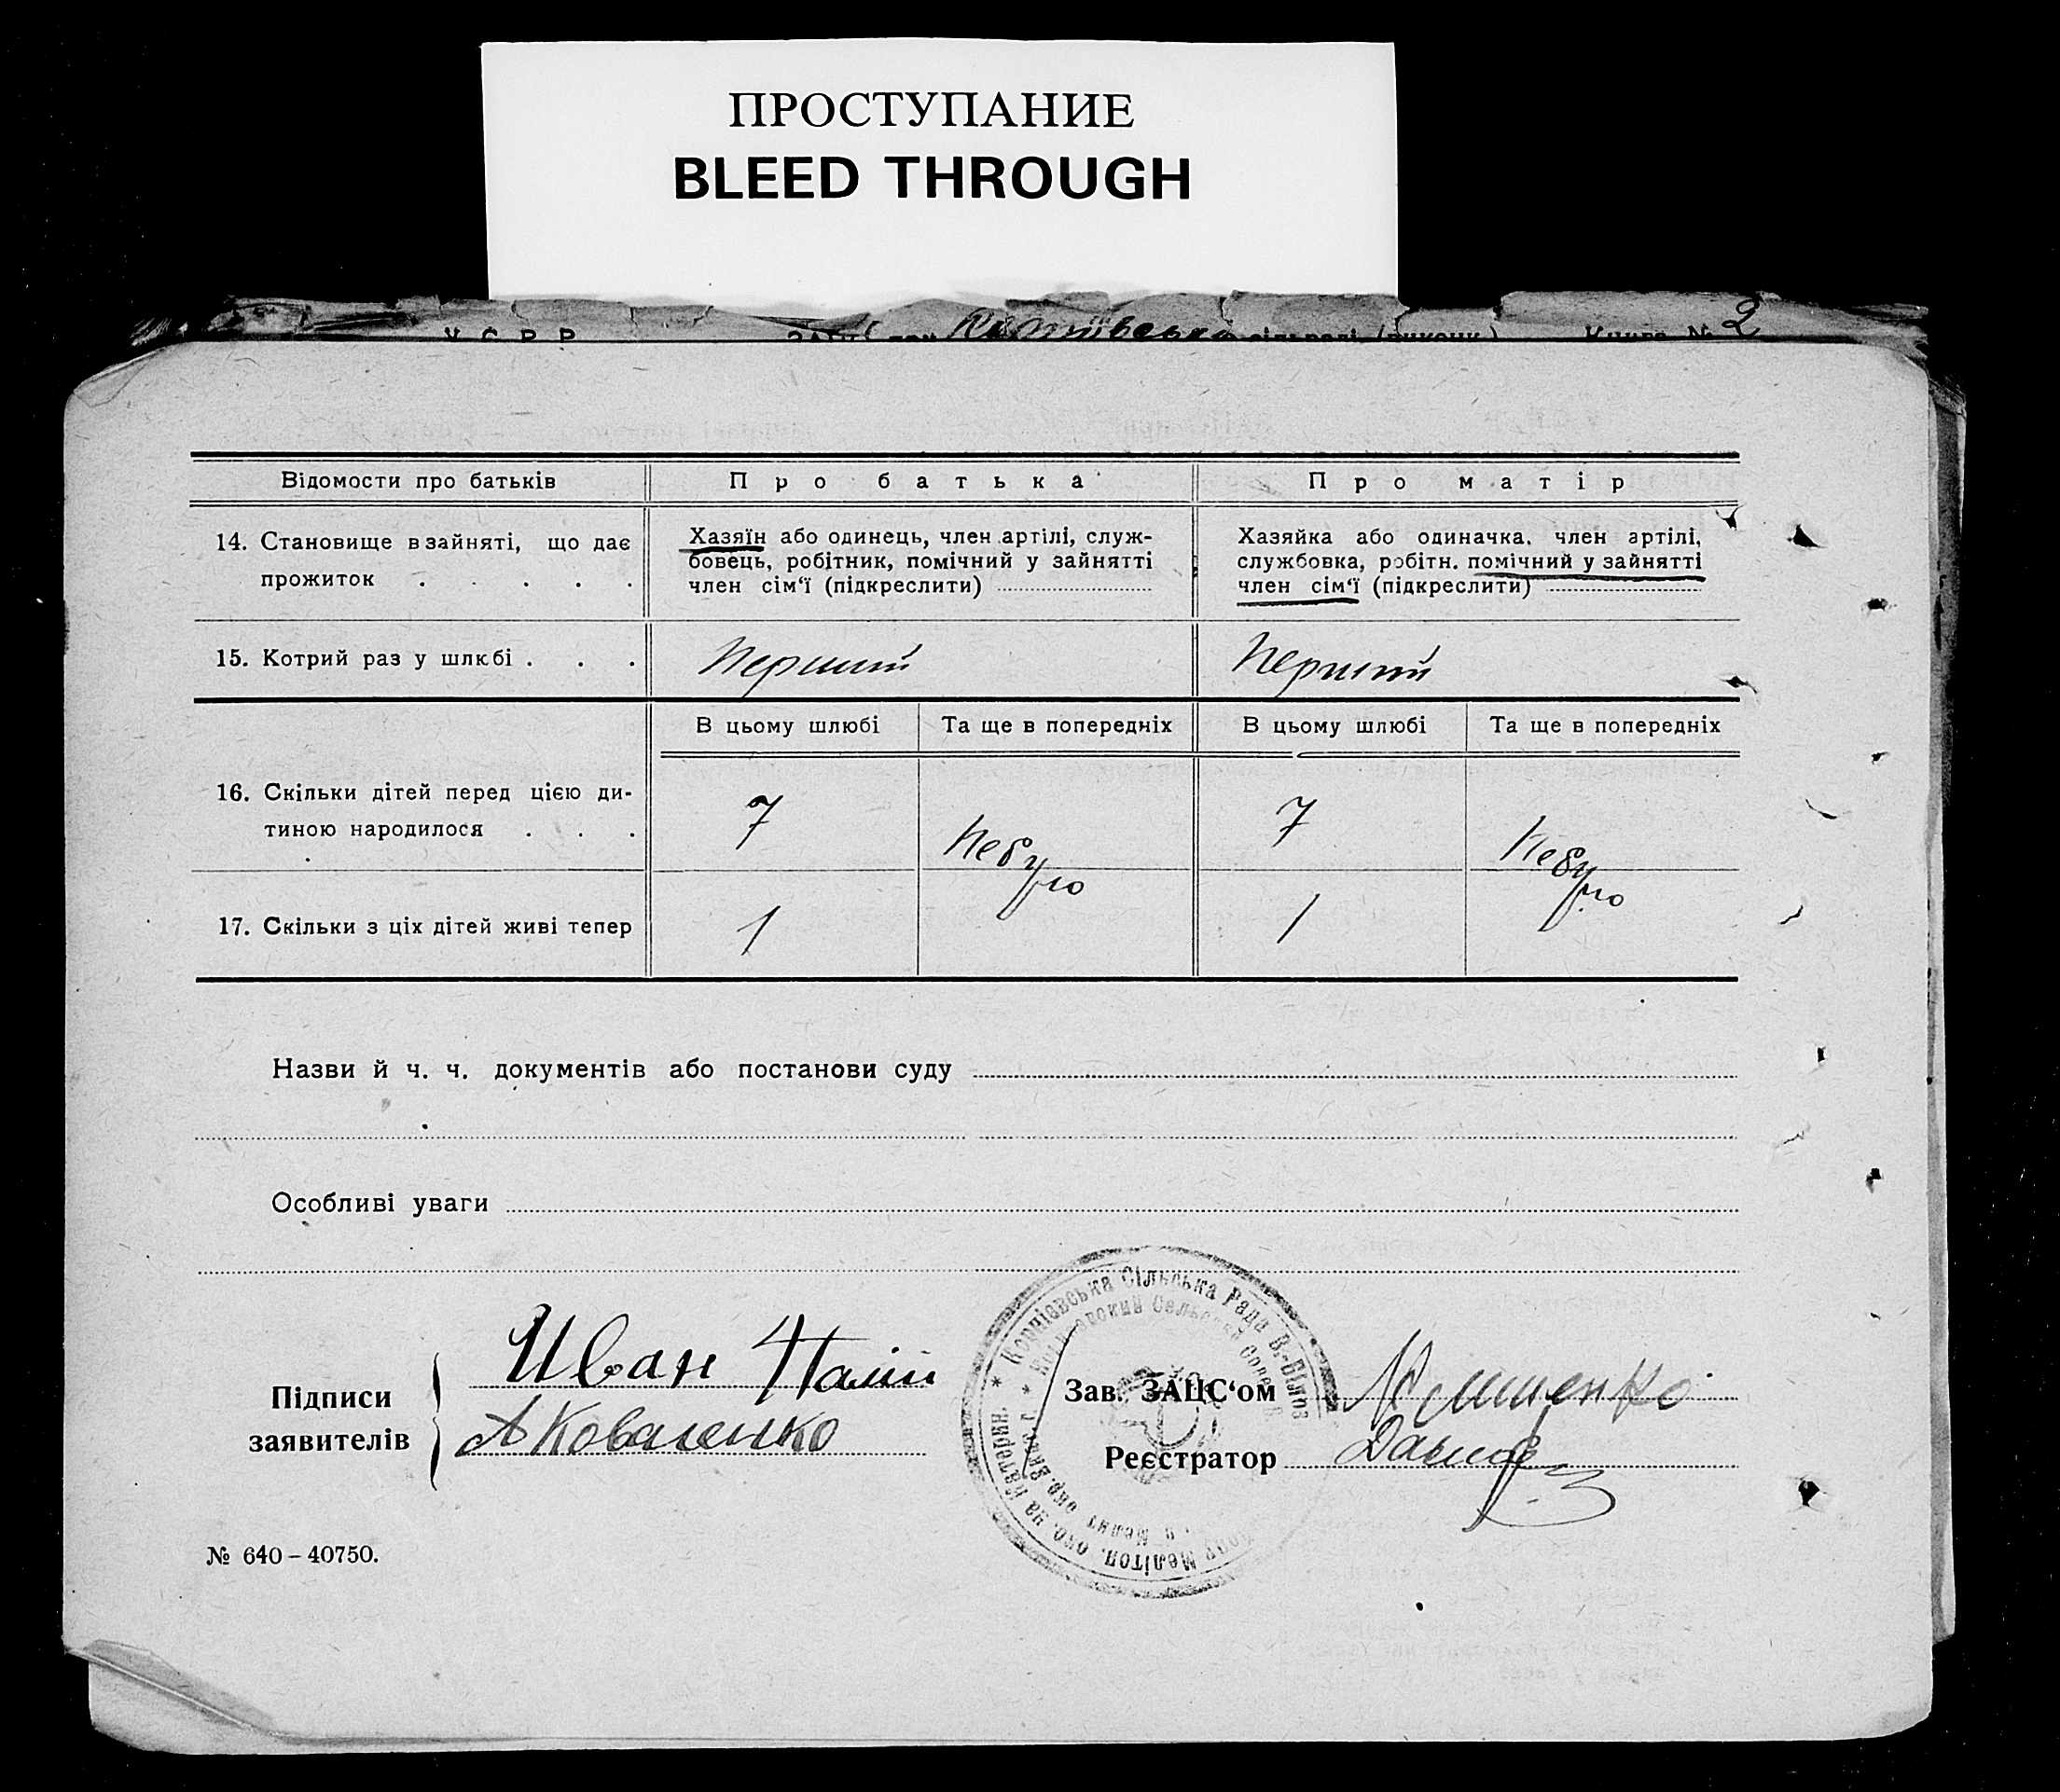 ПРОСТУПАНИЕ
BLEED THROUGH
У. С. Р. Р. ЗАГС при сільраді (виконк.) Книга № 2
Відомости про батьків
Про батька
Про матір
14. Становище в зайняті, що дає
прожиток . . . . .
Хазяїн або одинець, член артілі, служ-
бовець, робітник, помічний у зайнятті
член сім‘ї (підкреслити)
Хазяйка або одиначка, член артілі,
службовка, робітн. помічний у зайнятті
член сім‘ї (підкреслити)
15. Котрий раз у шлюбі . . .
Перший
Перший
В цьому шлюбі
Та ще в попередніх
В цьому шлюбі
Та ще в попередніх
16. Скільки дітей перед цією ди-
тиною народилося . . .
7
Небуло
7
Небуло
17. Скільки з ціх дітей живі тепер
1
1
Назви й ч. ч. документів або постанови суду
Особливі уваги
Підписи
заявителів
Иван Палій
А Коваленко
Сільська Рада В.-Білоз
Мелітоп. окр. на Катеринщ.
Зав. ЗАЦС‘ом
Реєстратор
№ 640 – 40750.